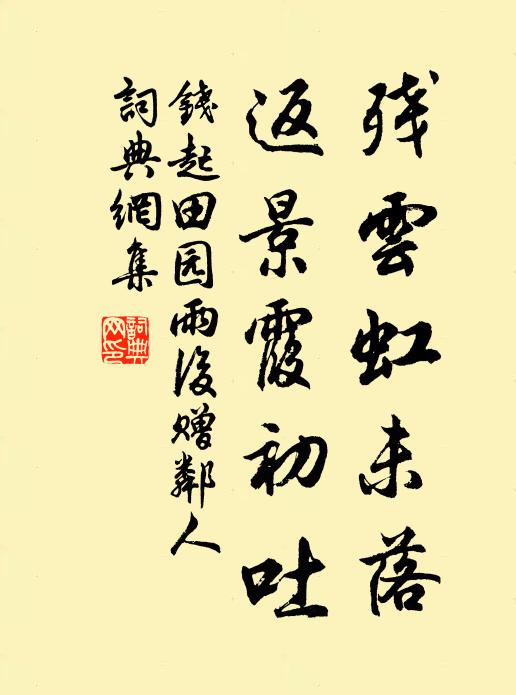 残雲虹未落
返景霞初吐
錢起田园雨後赠鄰人
詞典網集
詞典网印